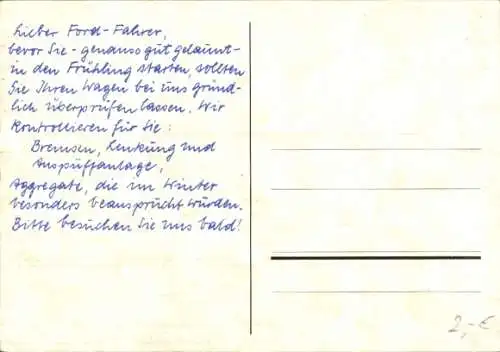 Lieber Ford-Fahrer,
bevor Sie - genauso gut gelaunt -
in den Frühling starten, sollten
Sie Ihren Wagen bei uns gründ-
lich überprüfen lassen. Wir
kontrollieren für Sie:
Bremsen, Lenkung und
Auspuffanlage,
Aggregate, die im Winter
besonders beansprucht wurden.
Bitte besuchen Sie uns bald!
2,-€